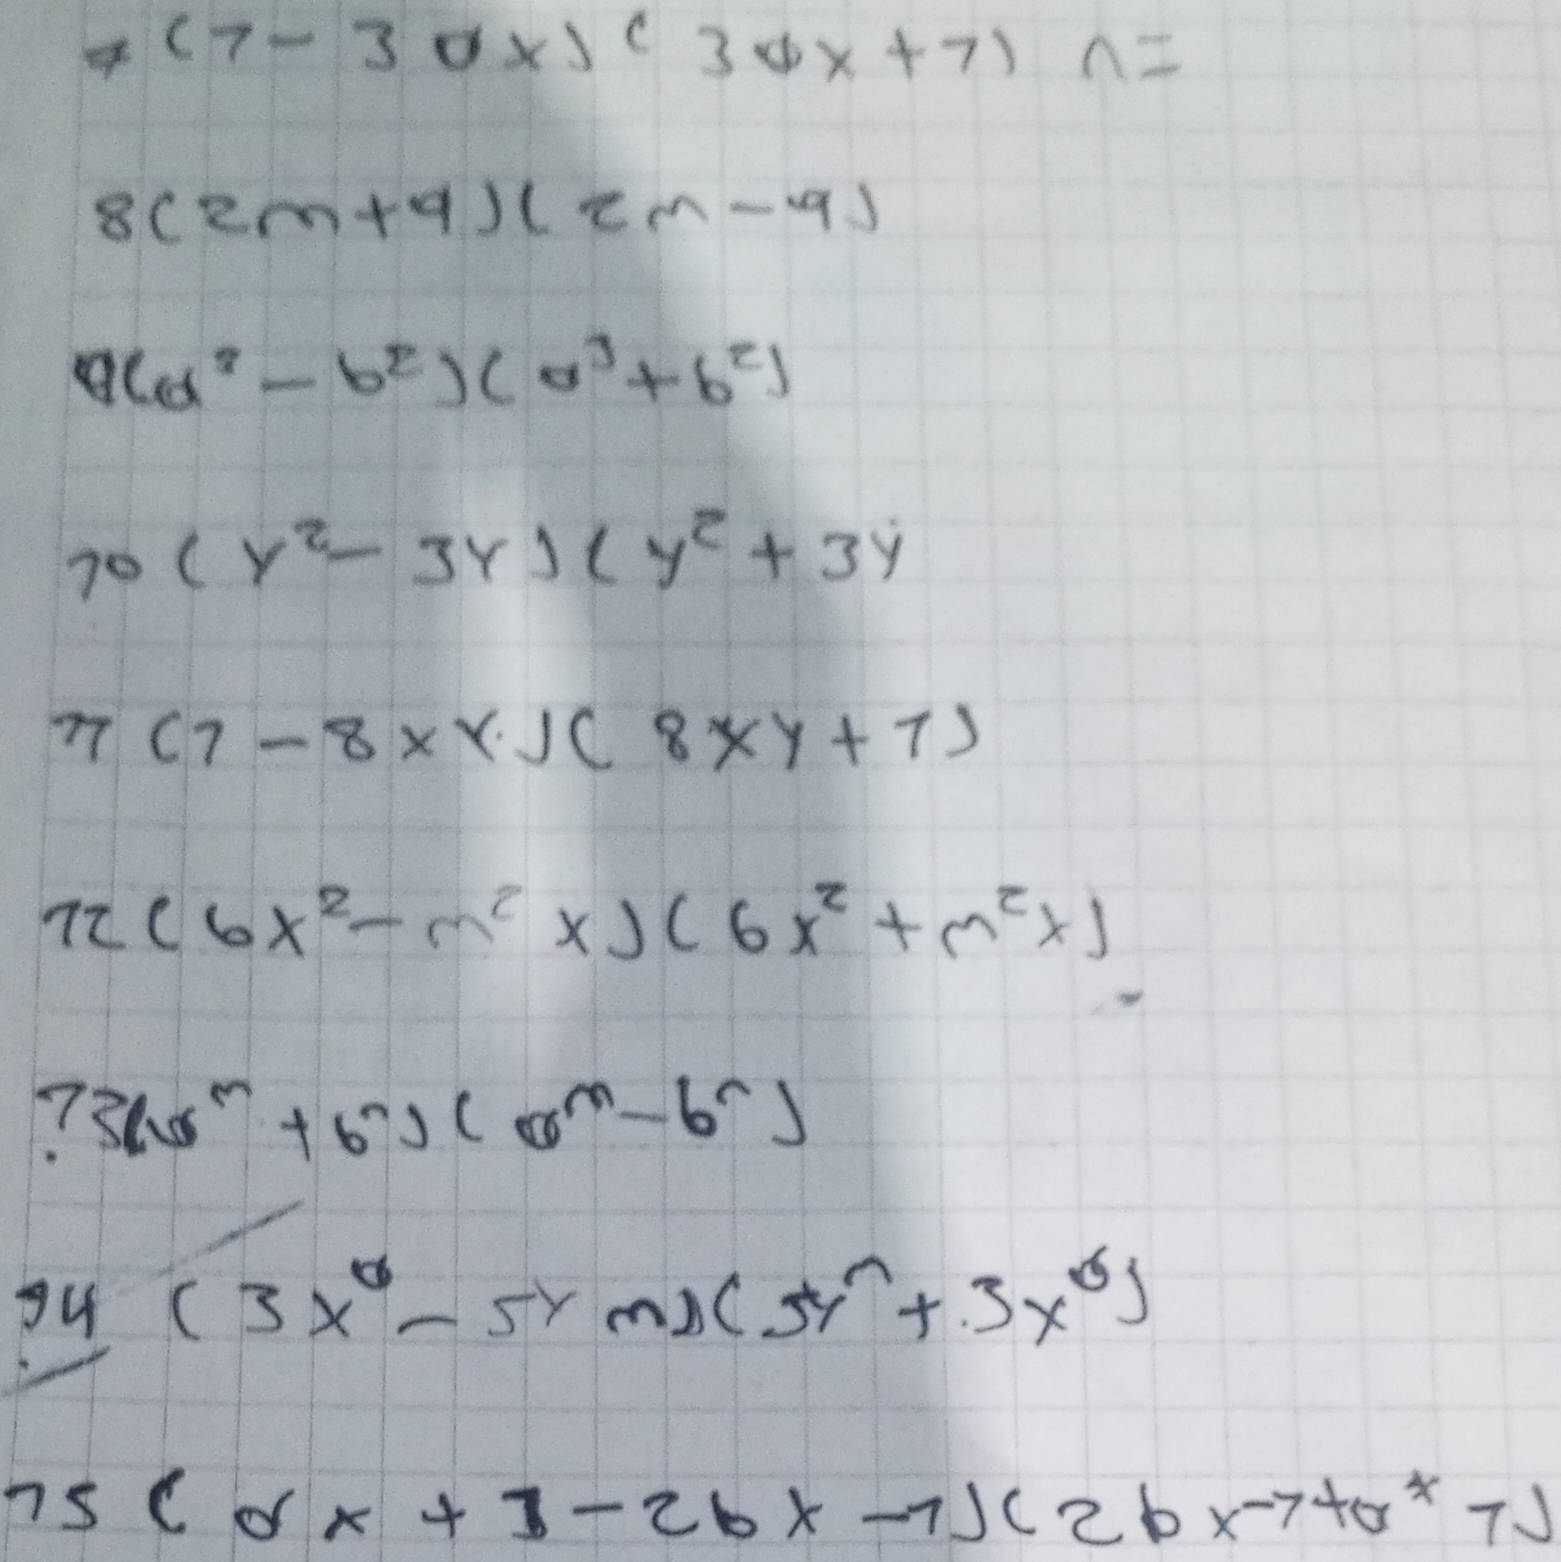 7 (7 - 3ax)(3ax + 7) n =
8(2m+9)(2m-9)
9(a³ - b²)(a³+b²)
10 (y² - 3y)(y² + 3y
11 (1 - 8xy)(8xy + 1)
12 (6x² - m²x)(6x² + m²x)
13(aᵐ + bⁿ)(aᵐ - bⁿ)
14 (3xᵃ - 5yᵐ)(5yⁿ + 3xᵃ)
15 (aˣ + 1 - 2bx - 1)(2bx-1+aˣ 1)